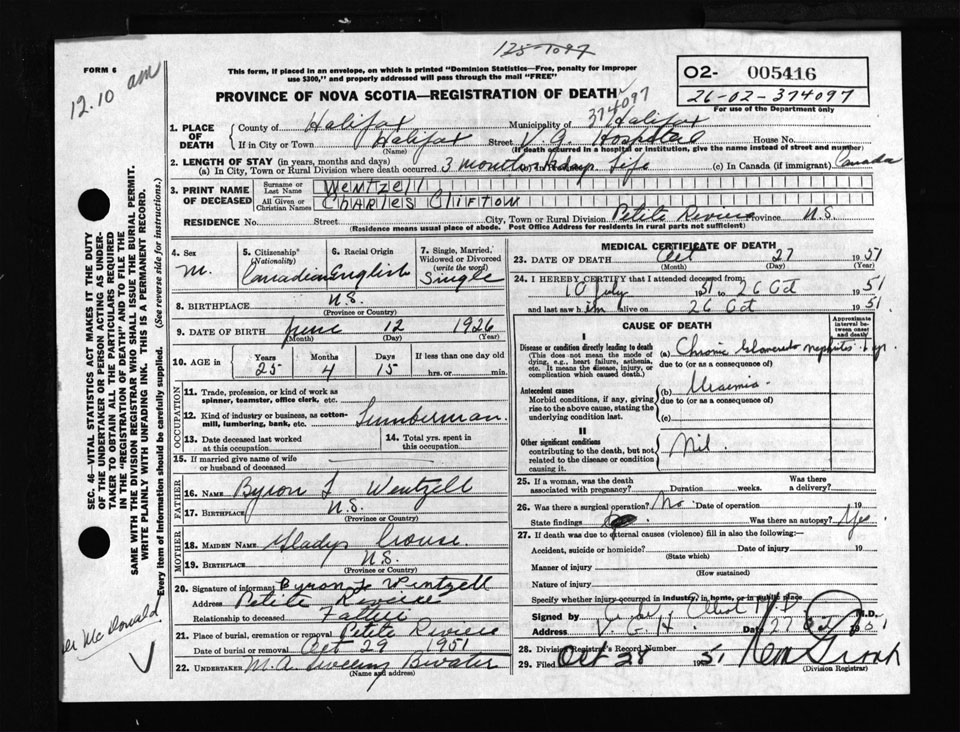 125-7097
FORM 6
12.10 am
This form, if placed in an envelope, on which is printed "Dominion Statistics—Free, penalty for improper
use $300," and properly addressed will pass through the mail "FREE"
PROVINCE OF NOVA SCOTIA—REGISTRATION OF DEATH
374097
O2- 005416
26-02-374097
For use of the Department only
1. PLACE OF DEATH
County of Halifax Municipality of Halifax
If in City or Town Halifax Street V. G. Hospital House No.
(Name) (If death occurred in a hospital or institution, give the name instead of street and number)
2. LENGTH OF STAY (in years, months and days)
(a) In City, Town or Rural Division where death occurred 3 months days Life (c) In Canada (if immigrant) Canada
3. PRINT NAME OF DECEASED
Surname or Last Name Wentzell
All Given or Christian Names Charles Clifton
RESIDENCE No. Street City, Town or Rural Division Petite Riviere Province N.S.
(Residence means usual place of abode. Post Office Address for residents in rural parts not sufficient)
4. Sex M.
5. Citizenship (Nationality) Canadian
6. Racial Origin English
7. Single, Married, Widowed or Divorced (write the word) Single
8. BIRTHPLACE N.S.
(Province or Country)
9. DATE OF BIRTH June 12 1926
(Month) (Day) (Year)
10. AGE in Years 25 Months 4 Days 15 If less than one day old
hrs. or min.
OCCUPATION
11. Trade, profession, or kind of work as
spinner, teamster, office clerk, etc.
12. Kind of industry or business, as cotton-
mill, lumbering, bank, etc. Lumberman.
13. Date deceased last worked
at this occupation
14. Total yrs. spent in
this occupation
15. If married give name of wife
or husband of deceased
FATHER
16. NAME Byron L Wentzell
17. BIRTHPLACE N.S.
(Province or Country)
MOTHER
18. MAIDEN NAME Gladys Crouse.
19. BIRTHPLACE N.S.
(Province or Country)
20. Signature of informant Byron L Wintzell
Address Petite Riviere
Relationship to deceased Father
21. Place of burial, cremation or removal Petite Riviere
Date of burial or removal Oct 29 1951
22. UNDERTAKER M.A.
(Name and address)
MEDICAL CERTIFICATE OF DEATH
23. DATE OF DEATH Oct 27 1951
(Month) (Day) (Year)
24. I HEREBY CERTIFY that I attended deceased from:
10 July 1951 to 26 Oct 1951
and last saw him alive on 26 Oct 1951
CAUSE OF DEATH
Approximate interval between onset and death
I
Disease or condition directly leading to death
(This does not mean the mode of dying, e.g., heart failure, asthenia, etc. It means the disease, injury, or complication which caused death.)
(a) Chronic Glomerulo nephritis
due to (or as a consequence of)
Antecedent causes
Morbid conditions, if any, giving rise to the above cause, stating the underlying condition last.
(b) Uraemia.
due to (or as a consequence of)
(c)
II
Other significant conditions
contributing to the death, but not related to the disease or condition causing it.
Nil.
25. If a woman, was the death
associated with pregnancy? Duration weeks. Was there a delivery?
26. Was there a surgical operation? No Date of operation 19
State findings Was there an autopsy? Yes
27. If death was due to external causes (violence) fill in also the following:—
Accident, suicide or homicide? Date of injury 19
(State which)
Manner of injury
(How sustained)
Nature of injury
Specify whether injury occurred in industry, in home, or in public place
Signed by M.D.
Address V. G. H. Date 27 19
28. Division Registrar's Record Number
29. Filed Oct 28 1951
(Division Registrar)
SEC. 46—VITAL STATISTICS ACT MAKES IT THE DUTY
OF THE UNDERTAKER OR PERSON ACTING AS UNDER-
TAKER TO OBTAIN ALL THE PARTICULARS REQUIRED
IN THE "REGISTRATION OF DEATH" AND TO FILE THE
SAME WITH THE DIVISION REGISTRAR WHO SHALL ISSUE THE BURIAL PERMIT.
WRITE PLAINLY WITH UNFADING INK. THIS IS A PERMANENT RECORD.
Every item of information should be carefully supplied. (See reverse side for instructions.)
McDonald